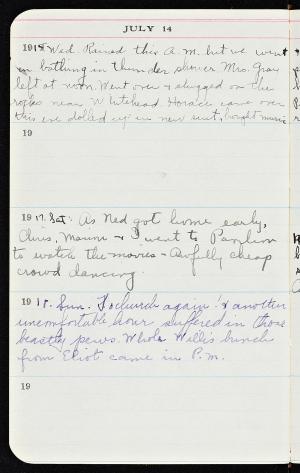 JULY 14
1915 Wed Rained this A.M. but we went
in bathing in thunder shower Mrs. Gray
left at noon. Went over & slugged on the
rocks near Whitehead. Horace came over
this eve dolled up in new suit, bought music
19
1917. Sat. As Ned got home early,
Chris, Marim & I went to Pavilion
to watch the movies - Awfully cheap
crowd dancing.
1918. Sun. To church again! & another
uncomfortable hour suffered in those
beastly pews. Whole Willis bunch
from Eliot came in P.M.
19